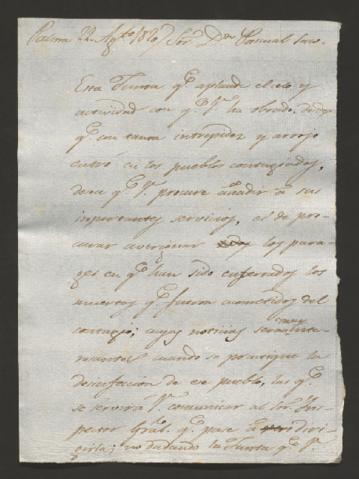 Palma 22 Agto 1820 Sor Dn Pascual
Esta Junta qe aplaude el celo y
actividad con qe V. ha obrado, desde
qe con tanta intrepidez y arrojo
entró en los pueblos contagiados,
desea qe V. procure añadir a sus
importantes servicios, el de pro-
curar averiguar los para-
ges en qe han sido enterrados los
muertos qe fueron acometidos del
contagio; cuyas noticias seran muy
cuando se practique la
desinfeccion de ese pueblo, las qe
se servirá V. comunicar al Sor Ins-
pector Gral. qe pase a dirigirla; no dudando la Junta qe V.